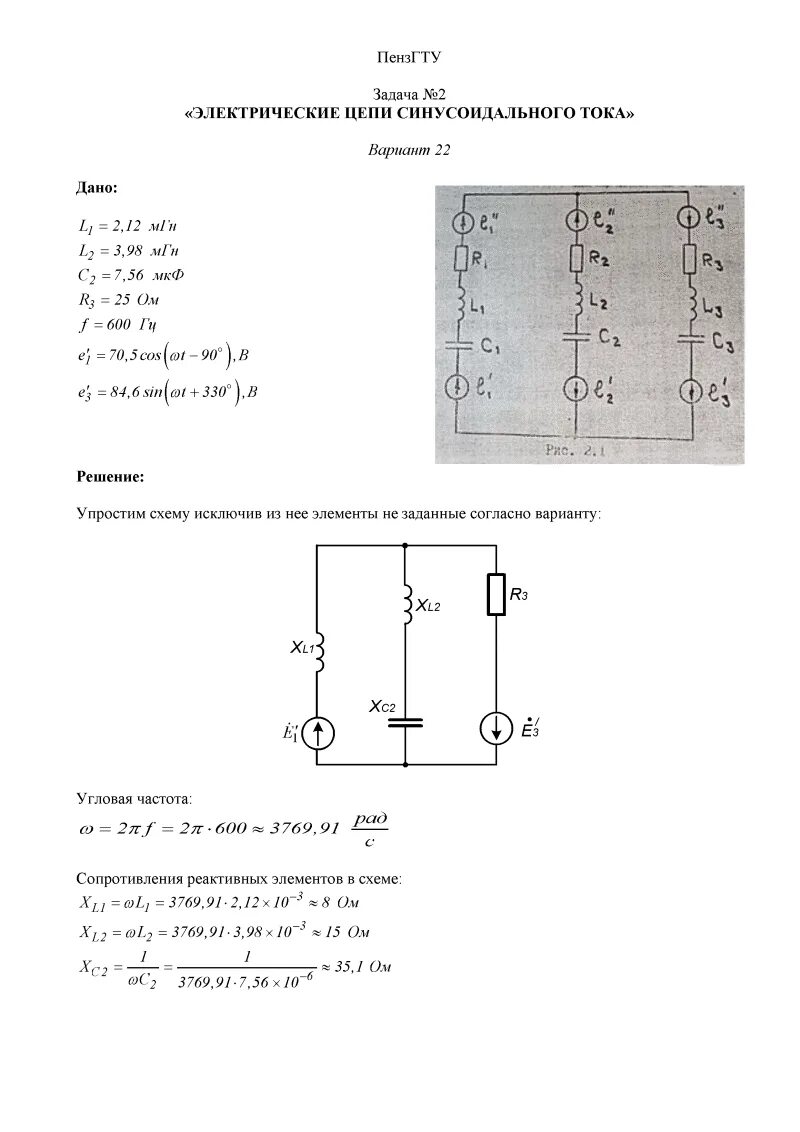 ПензГТУ
Задача №2
«ЭЛЕКТРИЧЕСКИЕ ЦЕПИ СИНУСОИДАЛЬНОГО ТОКА»
Вариант 22
Дано:
L₁ = 2,12 мГн
L₂ = 3,98 мГн
C₂ = 7,56 мкФ
R₃ = 25 Ом
f = 600 Гц
e₁′ = 70,5 cos(ωt − 90°), В
e₃′ = 84,6 sin(ωt + 330°), В
e₁″ e₂″ e₃″
R₁ R₂ R₃
L₁ L₂ L₃
C₁ C₂ C₃
e₁′ e₂′ e₃′
Рис. 2.1
Решение:
Упростим схему исключив из нее элементы не заданные согласно варианту:
XL2 R3
XL1
XC2
Ė₁′ Ė₃′
Угловая частота:
ω = 2π f = 2π · 600 ≈ 3769,91 рад/с
Сопротивления реактивных элементов в схеме:
X_L1 = ωL₁ = 3769,91 · 2,12 × 10⁻³ ≈ 8 Ом
X_L2 = ωL₂ = 3769,91 · 3,98 × 10⁻³ ≈ 15 Ом
X_C2 = 1/(ωC₂) = 1/(3769,91 · 7,56 × 10⁻⁶) ≈ 35,1 Ом